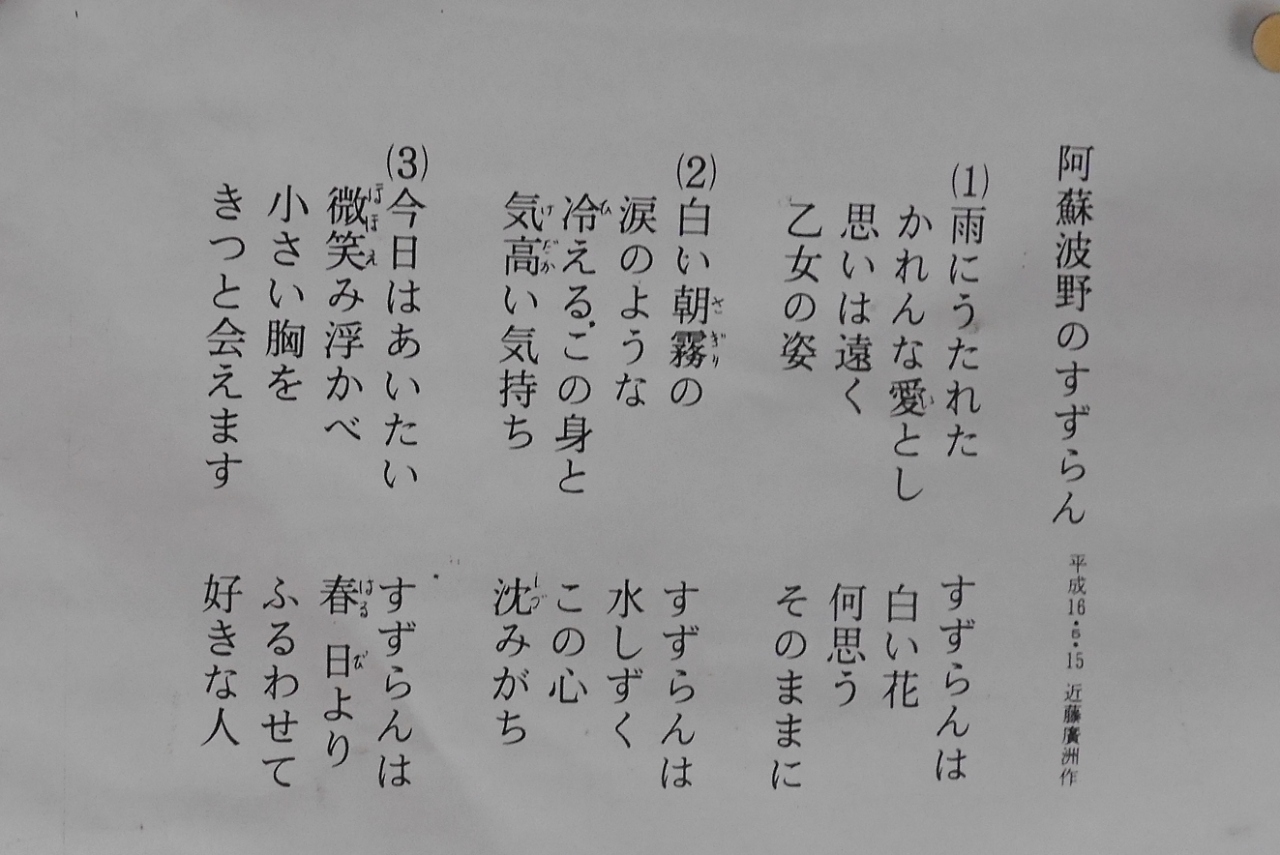 阿蘇波野のすずらん 平成16・5・15 近藤廣洲作
(1)雨にうたれた すずらんは
かれんな愛とし 白い花
思いは遠く 何思う
乙女の姿 そのままに
(2)白い朝霧の すずらんは
涙のような 水しずく
冷える.この身と この心
気高い気持ち 沈みがち
(3)今日はあいたい すずらんは
微笑み浮かべ 春日より
小さい胸を ふるわせて
きっと会えます 好きな人